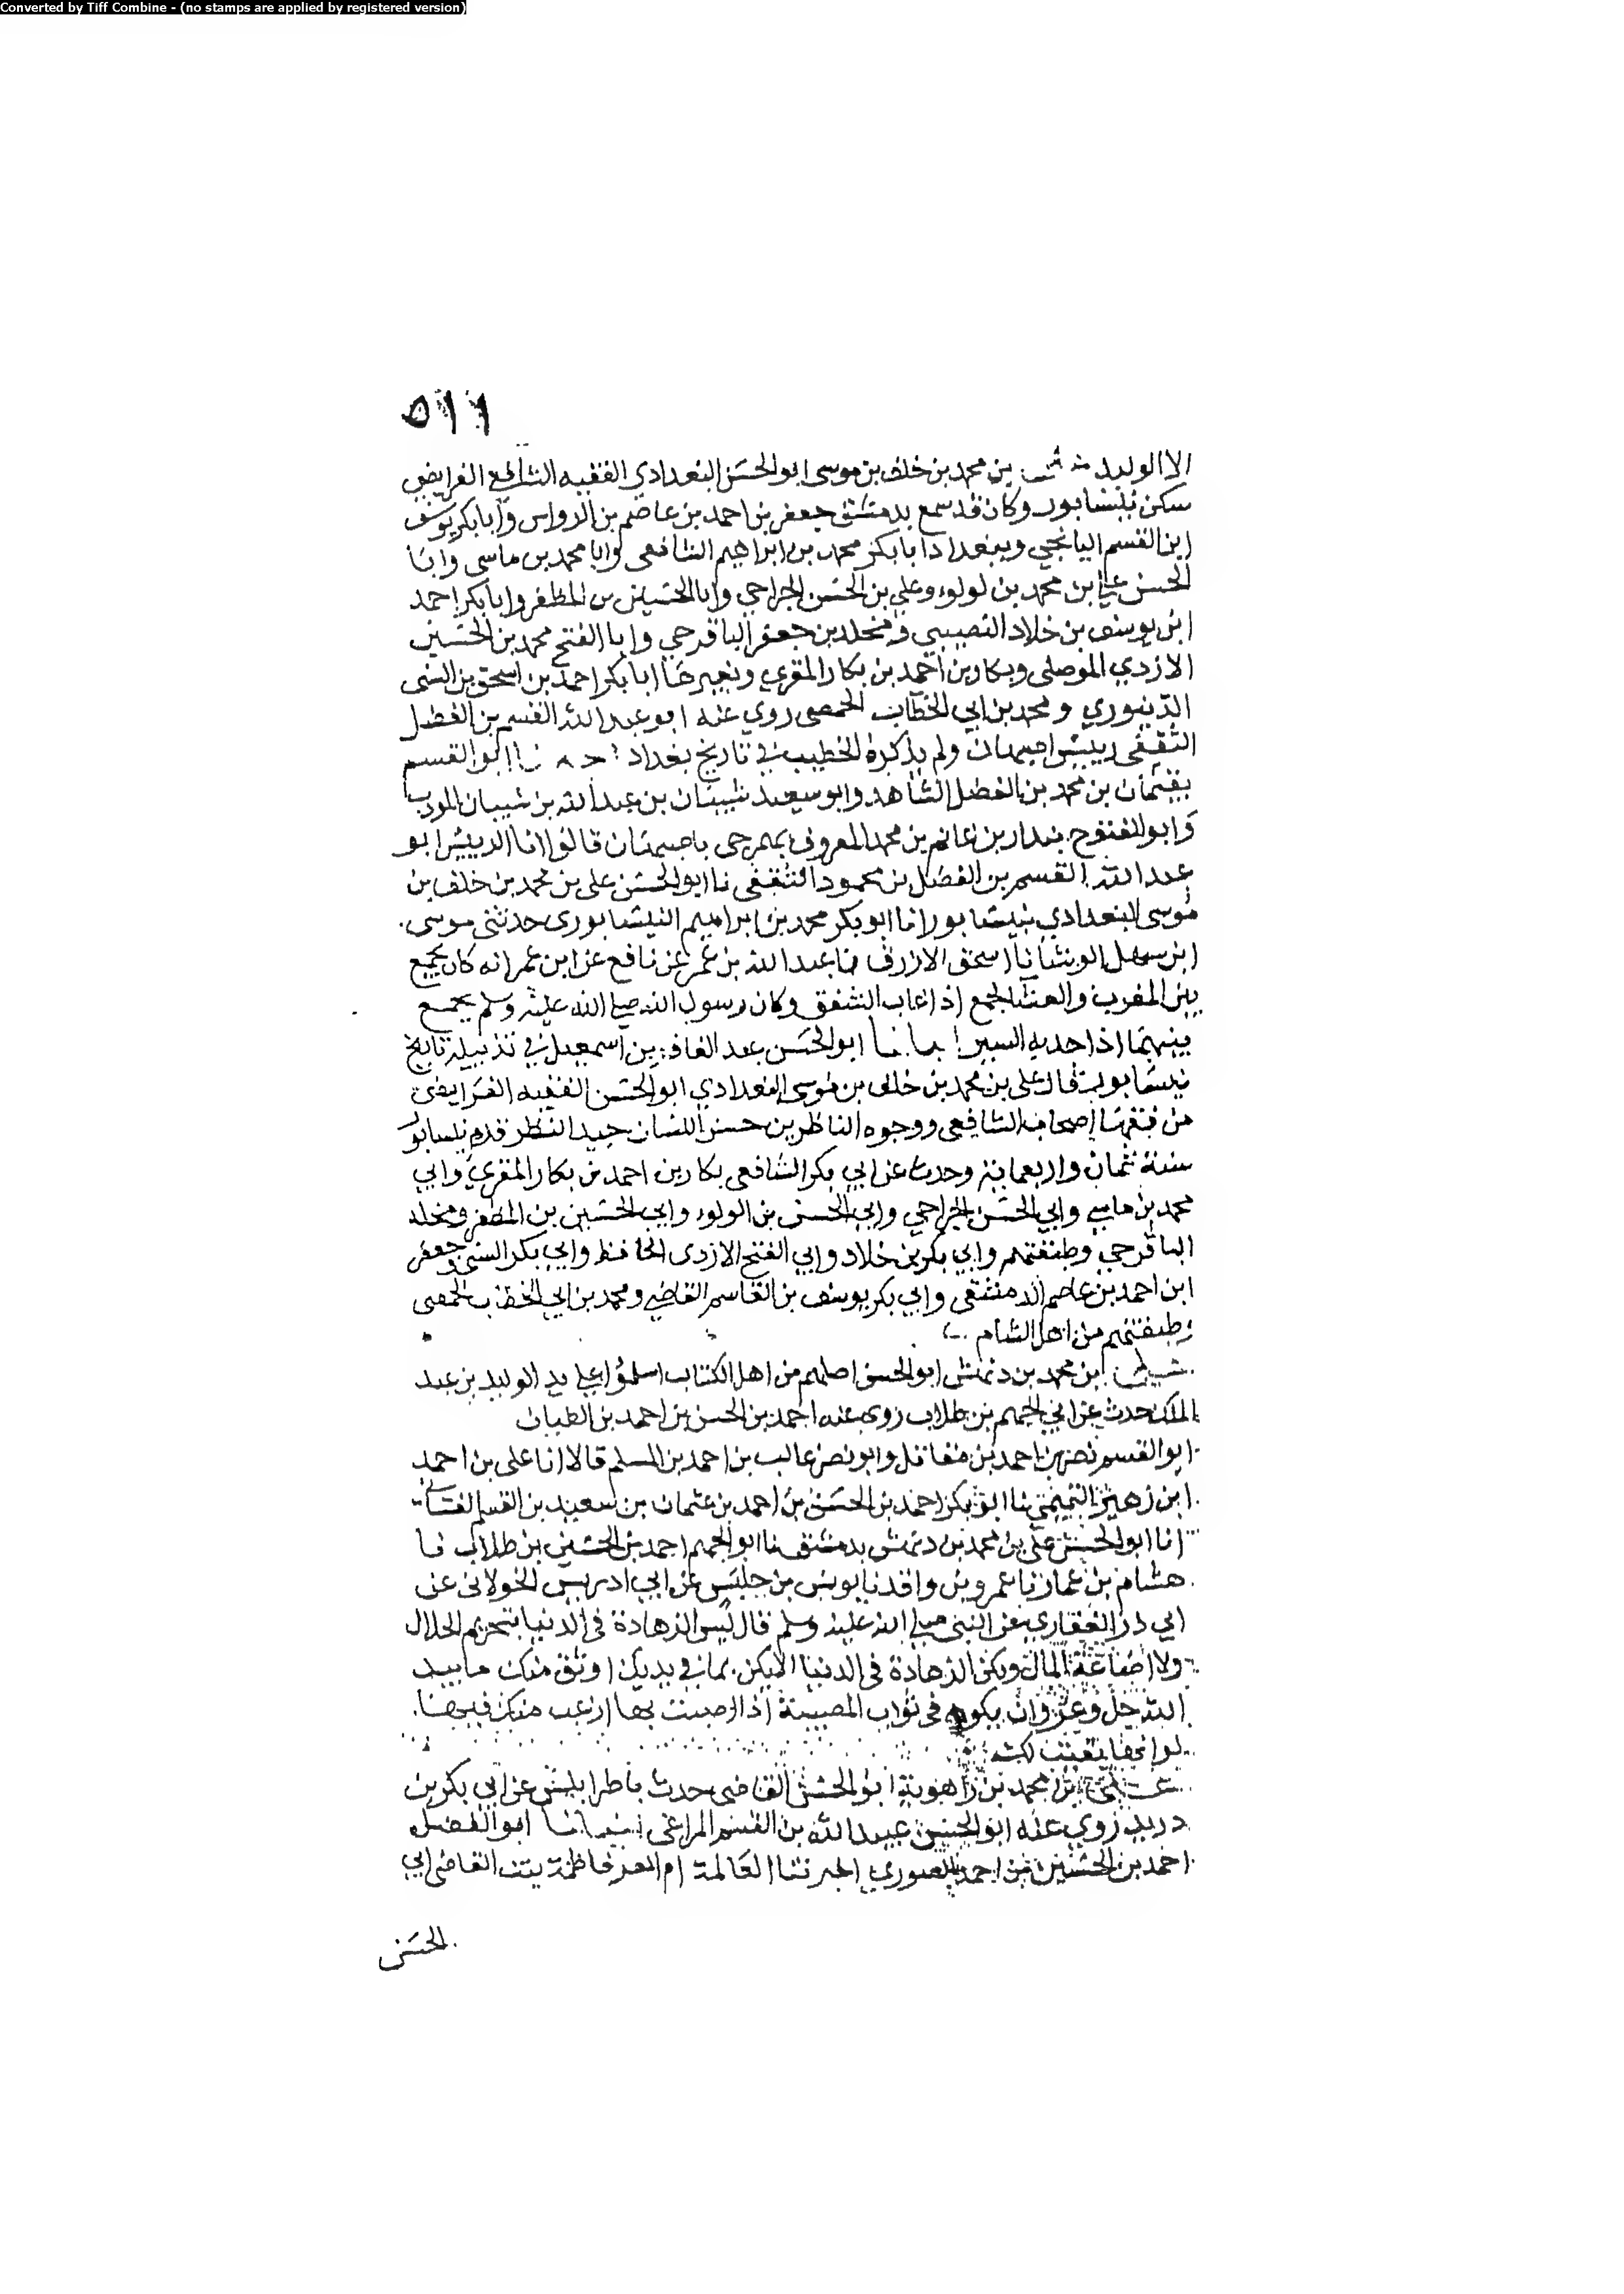 Converted by Tiff Combine - (no stamps are applied by registered version)
٥١١
الا الوليد بن محمد بن خلف بن موسى ابو الحسن البغدادي الفقيه الشافعي الفرايضي
سكن نيسابور وكان قد سمع بدمشق جعفر بن احمد بن عاصم بن الرواس وابا بكر يوسف
ابن القسم الميانجي وببغداد ابا بكر محمد بن ابراهيم الشافعي وابا محمد بن ماسي وابا
الحسن علي بن محمد بن لولوء وعلي بن الحسن الجراحي وابا الحسين بن المظفر وابا بكر احمد
ابن يوسف بن خلاد النصيبي ومخلد بن جعفر الباقرحي وابا الفتح محمد بن الحسين
الازدي الموصلي وبكار بن احمد بن بكار المقري وغيرها ابا بكر احمد بن اسحق بن السني
الدينوري ومحمد بن ابي الخطاب الحمصي روى عنه ابو عبد الله القسم بن الفضل
الثقفي رييس اصبهان ولم يذكره الخطيب في تاريخ بغداد ابو القسم
بن محمد بن الفضل الشاهد وابو سعيد شيبان بن عبد الله بن شيبان المودب
وابو الفتوح بندار بن غانم بن محمد المعروف باصبهان قالوا انا الرييس ابو
عبد الله القسم بن الفضل بن محمود الثقفي نا ابو الحسن علي بن محمد بن خلف بن
موسى البغدادي بنيسابور انا ابو بكر محمد بن ابراهيم النيسابوري حدثني موسى
ابن سهل الوشا نا اسحق الازرق نا عبد الله بن عمر عن نافع عن ابن عمر انه كان يجمع
بين المغرب والعشا الجمع اذا غاب الشفق وكان رسول الله صلى الله عليه وسلم يجمع
بينهما اذا جد به السير ابو الحسن عبد الغافر بن اسمعيل في تذييله تاريخ
نيسابور قال علي بن محمد بن خلف بن موسى البغدادي ابو الحسن الفقيه الفرايضي
من فقها اصحاب الشافعي ووجوه الناظرين حسن اللسان جيد النظر قدم نيسابور
سنة ثمان واربعماية وحدث عن ابي بكر الشافعي بكار بن احمد بن بكار المقري وابي
محمد بن ماسي وابي الحسن الجراحي وابي الحسن بن لولوء وابي الحسين بن المظفر ومخلد
الباقرحي وطبقتهم وابي بكر بن خلاد وابي الفتح الازدي الحافظ وابي بكر السني وجعفر
ابن احمد بن عاصم الدمشقي وابي بكر يوسف بن القاسم القاضي ومحمد بن ابي الخطاب الحمصي
وطبقتهم من اهل الشام
ابن محمد بن دنمش ابو الحسن اصلهم من اهل الكتاب اسلموا على يد الوليد بن عبد
الملك حدث عن ابي الجهم بن طلاب روى عنه احمد بن الحسن بن احمد بن الطيان
ابو القسم نصر بن احمد بن مقاتل وابو نصر غالب بن احمد بن المسلم قالا انا علي بن احمد
ابن زهير التميمي نا ابو بكر احمد بن الحسن بن احمد بن عثمان بن سعيد بن القسم الغساني
انا ابو الحسن علي بن محمد بن دنمش بدمشق نا ابو الجهم احمد بن الحسين بن طلاب نا
هشام بن عمار نا عمرو بن واقد نا يونس بن حلبس عن ابي ادريس الخولاني عن
ابي ذر الغفاري عن النبي صلى الله عليه وسلم قال ليس الزهادة في الدنيا بتحريم الحلال
ولا اضاعة المال ولكن الزهادة في الدنيا الا يكن بما في يديك اوثق منك ما بيد
الله جل وعز وان يكون في ثواب المصيبة اذا اصبت بها ارغب منك فيها
لو انها بقيت لك
بن محمد بن راهوية ابو الحسن القاضي حدث باطرابلس عن ابي بكر بن
دريد روى عنه ابو الحسين عبيد الله بن القسم المراغي انبانا ابو الفضل
احمد بن الحسين بن احمد الصوري اخبرتنا العالمة ام العز فاطمة بنت القاضي ابي
الحسن